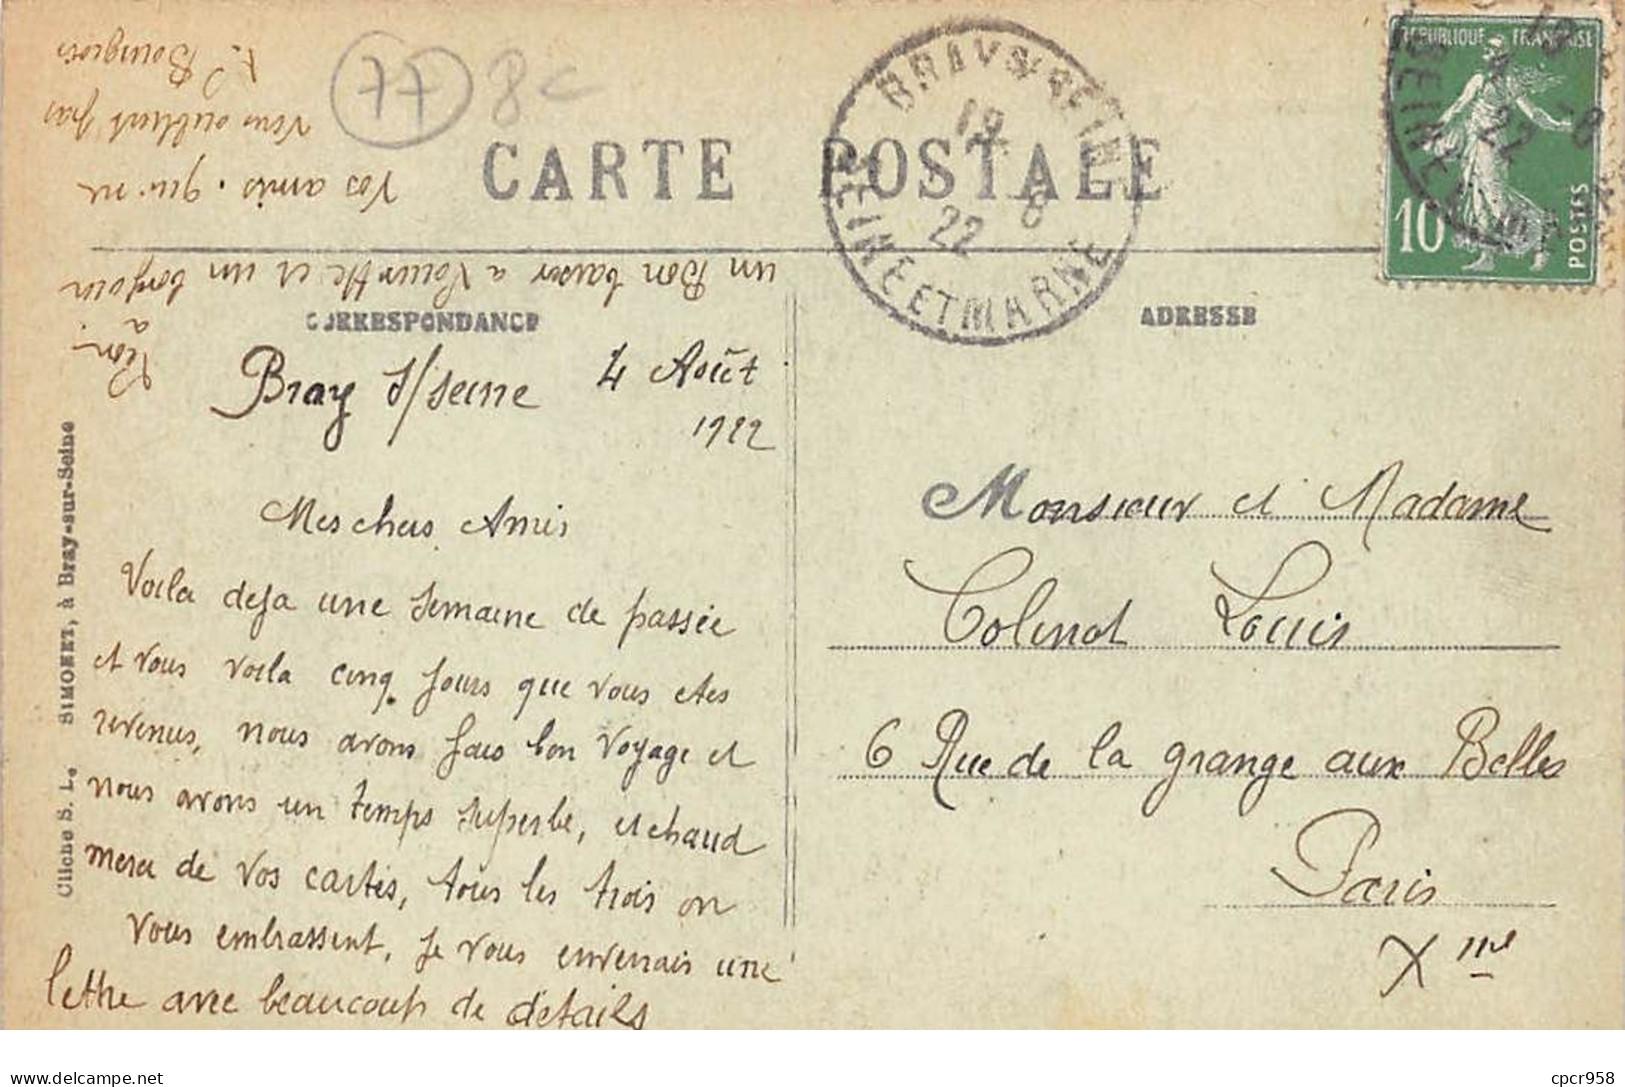 77 8c
CARTE POSTALE
BRAY S/ SEINE
19
8
22
SEINE ET MARNE
REPUBLIQUE FRANÇAISE
10
POSTES
CORRESPONDANCE
ADRESSE
Bray s/seine 4 Août
1922
Mes chers Amis
Voila deja une semaine de passée
et vous voila cinq jours que vous etes
revenus, nous avons fais bon voyage et
nous avons un temps superbe, et chaud
merci de vos cartes, tous les trois on
vous embrassent, je vous enverrais une
lettre avec beaucoup de détails
un Bon baiser a et un bonjour
a
Léon
Vos amis. qui ne
vous oublient pas
Bourgeois
Monsieur et Madame
Colinot Louis
6 Rue de la grange aux Belles
Paris
X me
Cliche S. L. SIMONET, à Bray-sur-Seine
cpcr958